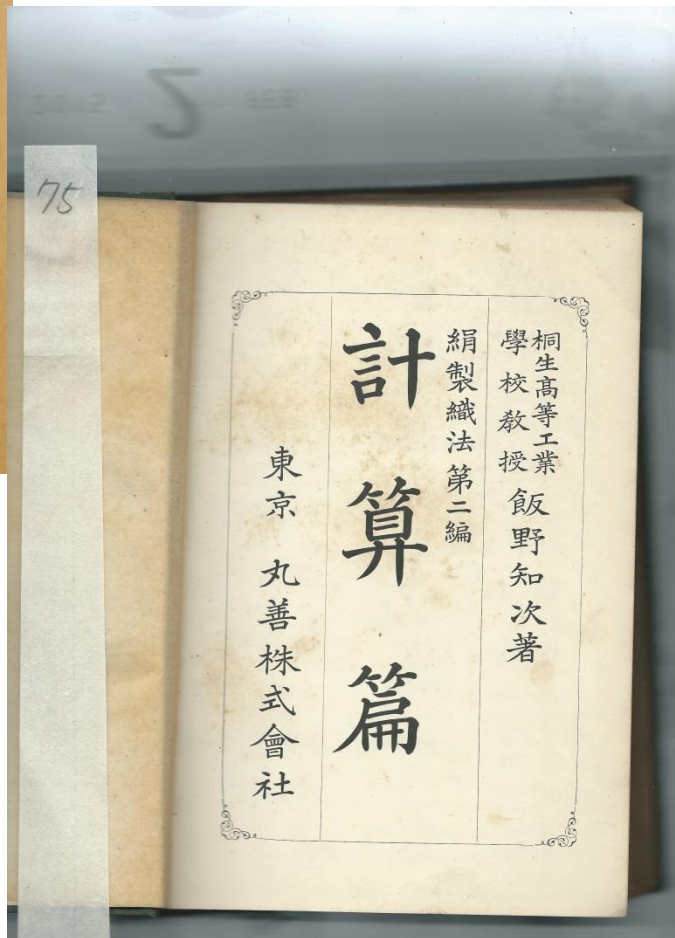 75
桐生高等工業
學校教授 飯野知次著
絹製織法第二編
計算篇
東京 丸善株式會社